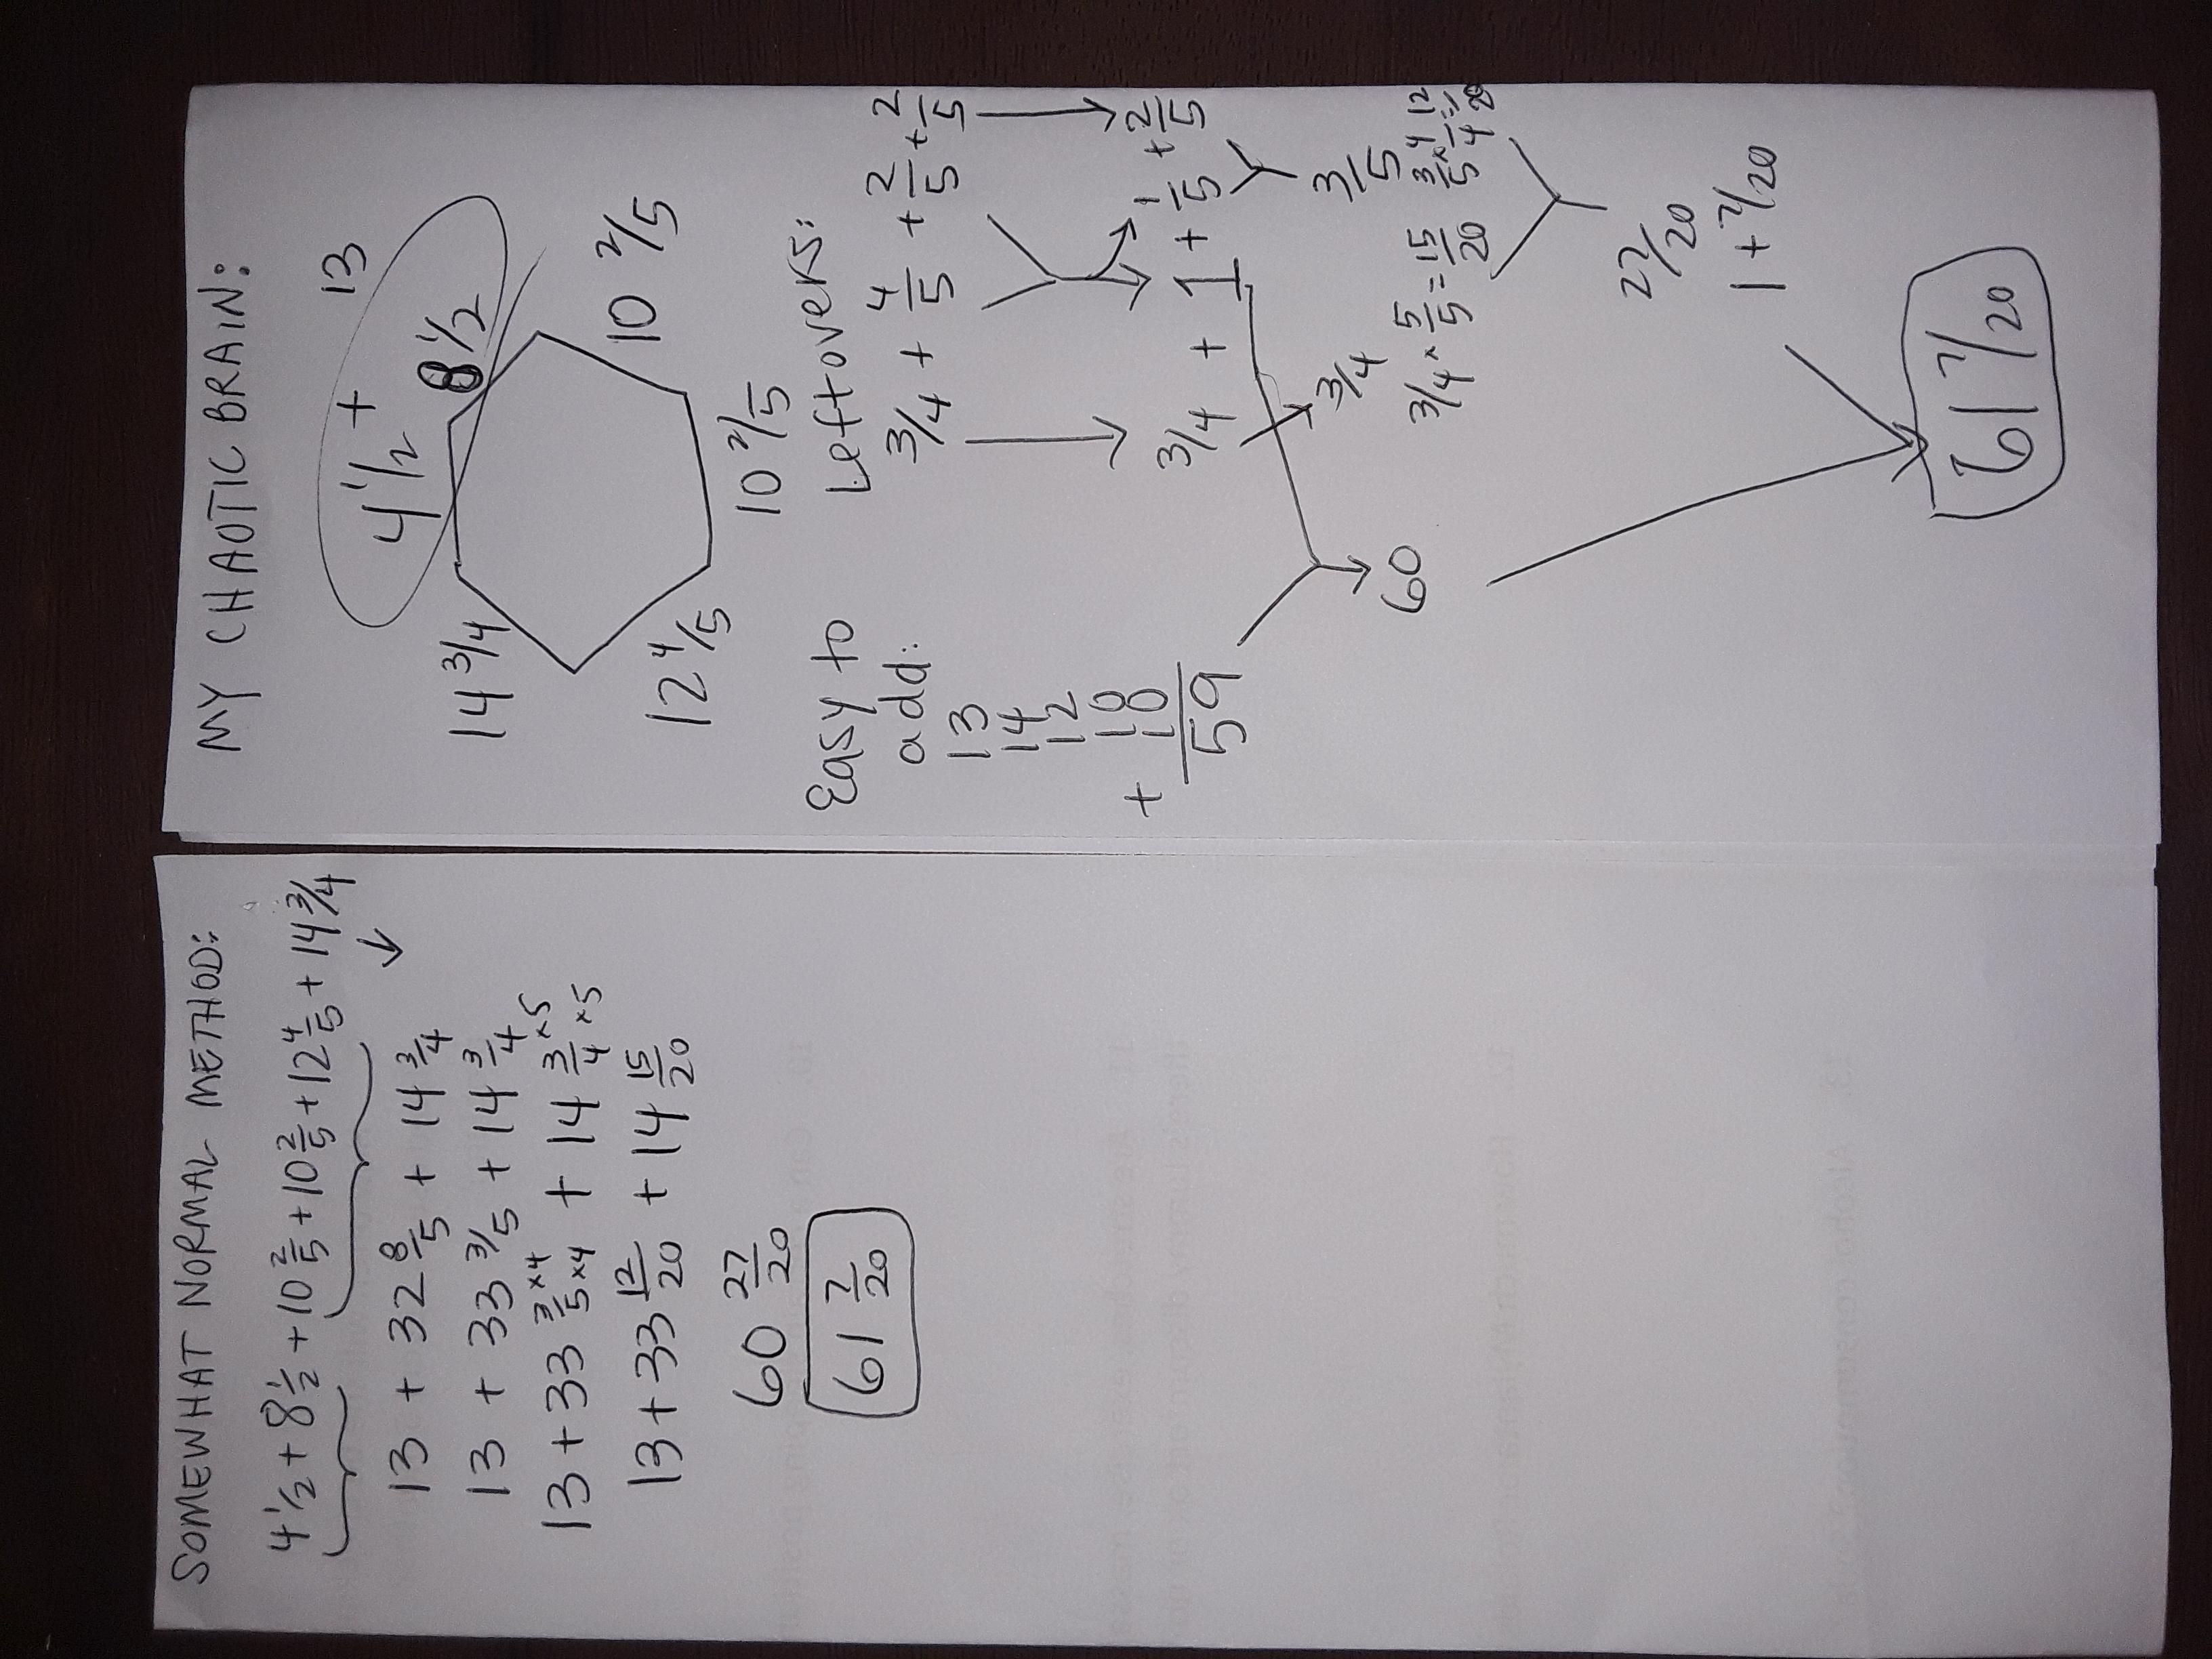 SOMEWHAT NORMAL METHOD:
4 1/2 + 8 1/2 + 10 2/5 + 10 2/5 + 12 4/5 + 14 3/4
13 + 32 8/5 + 14 3/4
13 + 33 3/5 + 14 3/4
13 + 33 3/5 ×4 ×4 + 14 3/4 ×5 ×5
13 + 33 12/20 + 14 15/20
60 27/20
61 7/20
MY CHAOTIC BRAIN:
13
4 1/2 + 8 1/2
14 3/4
10 2/5
12 4/5
10 2/5
Easy to
add:
13
14
12
10
+ 10
59
Leftovers:
3/4 + 4/5 + 2/5 + 2/5
3/4 + 1 + 1/5 + 2/5
3/4
3/5
3/4 × 5/5 = 15/20
3/5 × 4/4 = 12/20
60
27/20
1 + 7/20
61 7/20